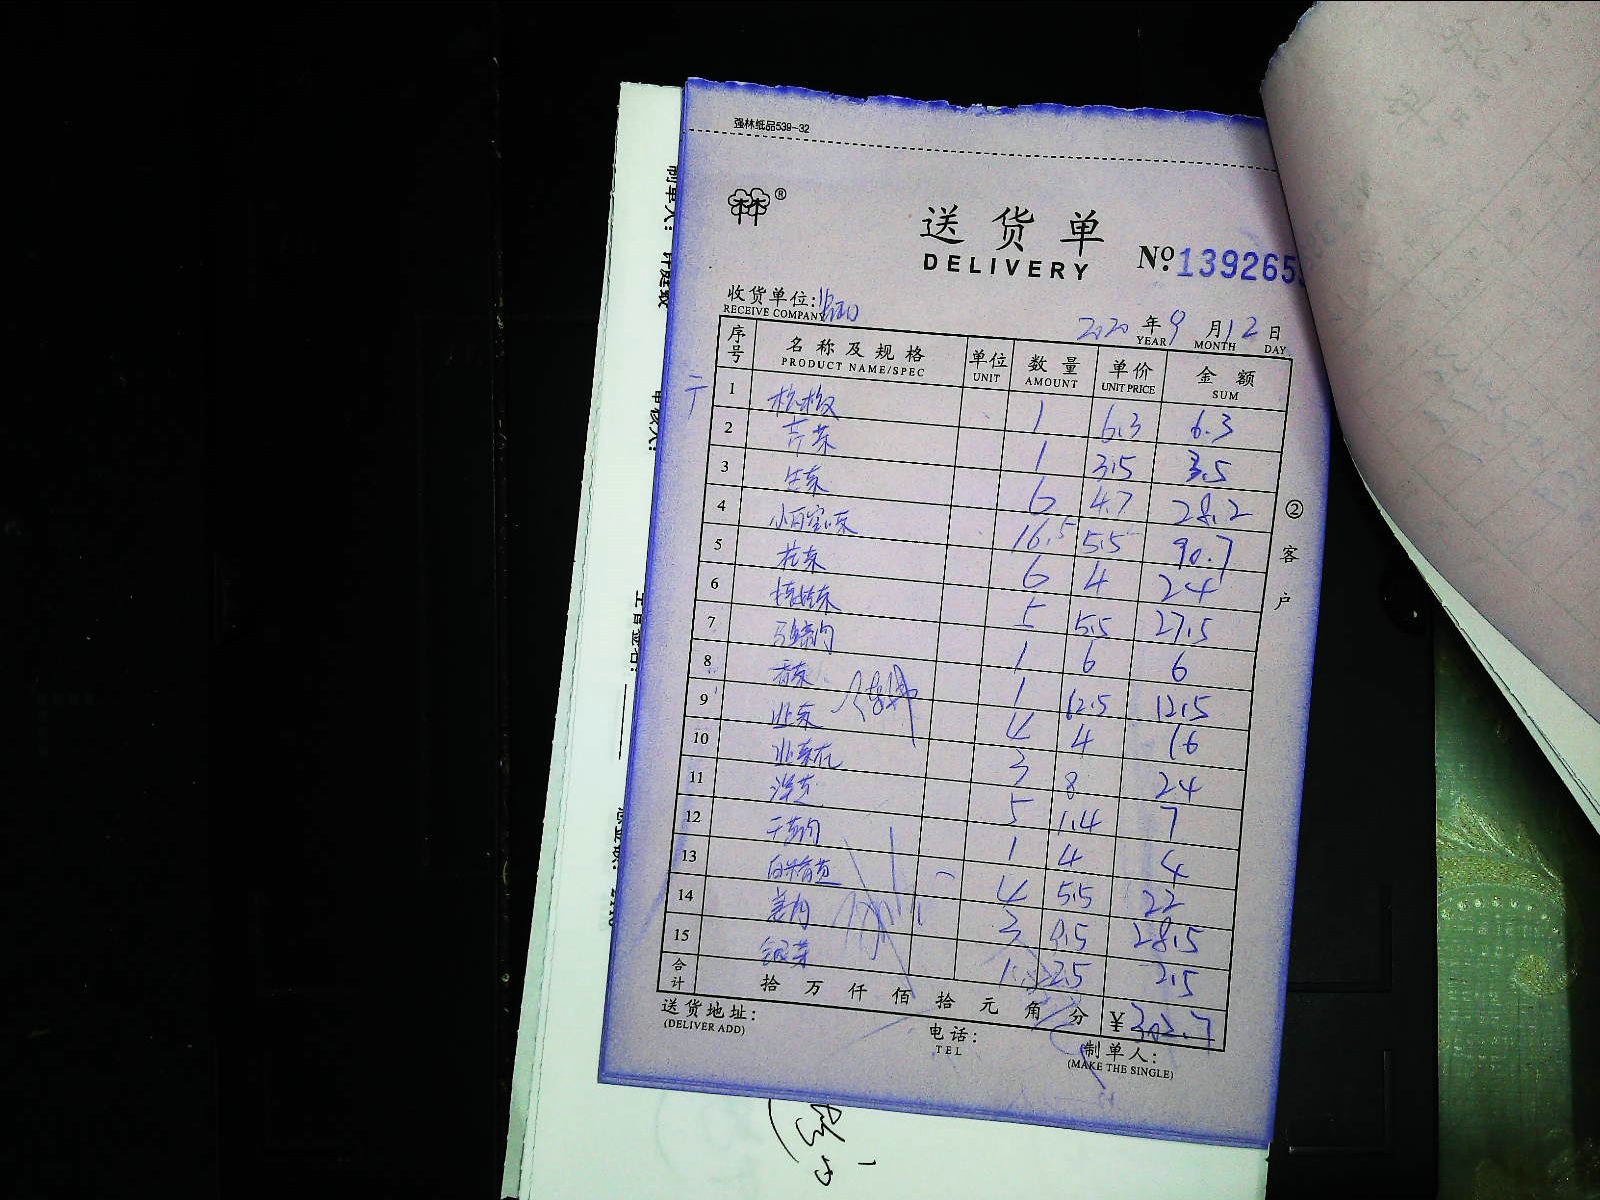 强林纸品539-32
林®
送货单
DELIVERY
No. 1392655
收货单位:
RECEIVE COMPANY
2020 年 9 月 12 日
YEAR MONTH DAY
序号 名称及规格 单位 数量 单价 金额
PRODUCT NAME/SPEC UNIT AMOUNT UNIT PRICE SUM
1 1 6.3 6.3
2 芹菜 1 3.5 3.5
3 生菜 6 4.7 28.2
4 16.5 5.5 90.7
5 花菜 6 4 24
6 娃娃菜 5 5.5 27.5
7 马蹄肉 1 6 6
8 香菜 1 12.5 12.5
9 韭菜 4 4 16
10 韭菜花 3 8 24
11 洋芋 5 1.4 7
12 1 4 4
13 4 5.5 22
14 姜肉 3 9.5 28.5
15 银芽 1 2.5 2.5
合计 拾 万 仟 佰 拾 元 角 分 ¥302.7
②客户
送货地址:
(DELIVER ADD)
电话:
TEL
制单人:
(MAKE THE SINGLE)
制单人: